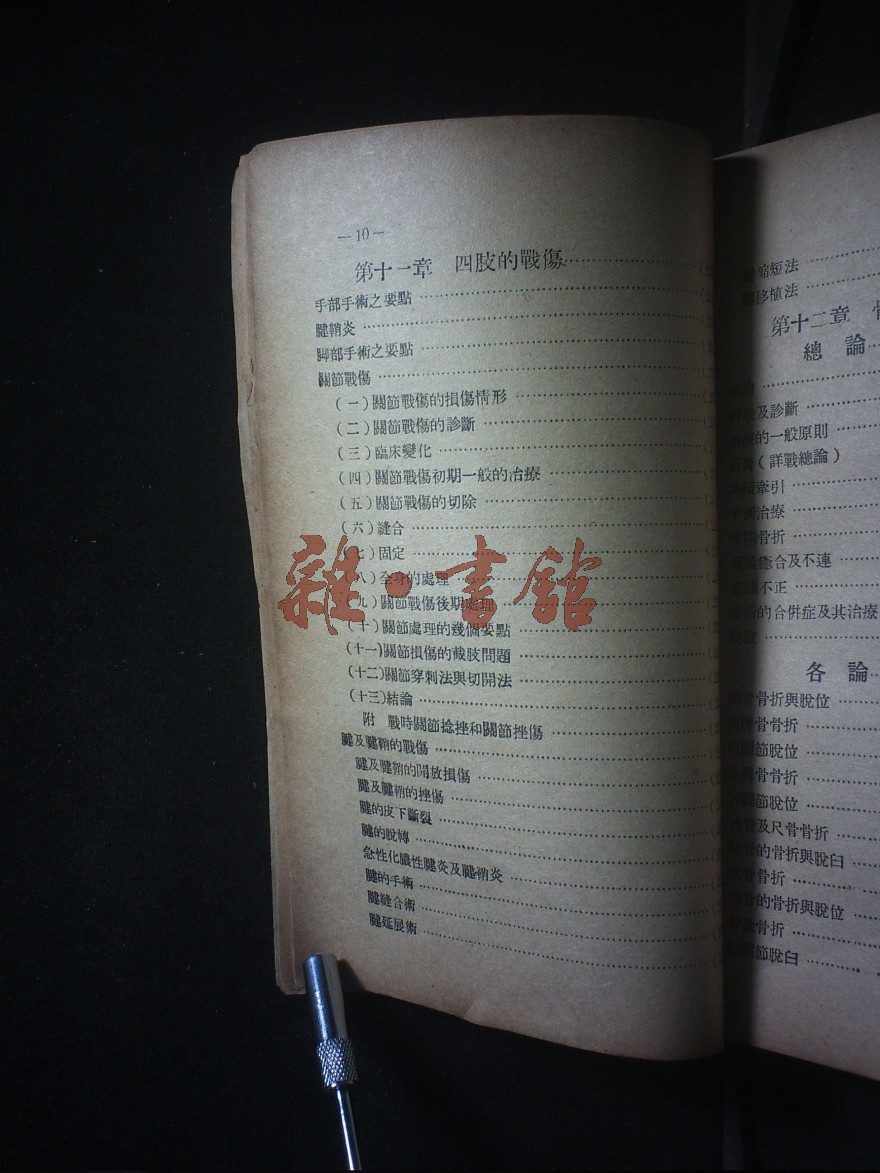 —10—
第十一章 四肢的戰傷
手部手術之要點
腱鞘炎
脚部手術之要點
關節戰傷
(一)關節戰傷的損傷情形
(二)關節戰傷的診斷
(三)臨床變化
(四)關節戰傷初期一般的治療
(五)關節戰傷的切除
(六)縫合
(七)固定
(八)全身的處理
(九)關節戰傷後期處理
(十)關節處理的幾個要點
(十一)關節損傷的截肢問題
(十二)關節穿刺法與切開法
(十三)結論
附 戰時關節捻挫和關節挫傷
腱及腱鞘的戰傷
腱及腱鞘的開放損傷
腱及腱鞘的挫傷
腱的皮下斷裂
腱的脫轉
急性化膿性腱炎及腱鞘炎
腱的手術
腱縫合術
腱延展術
雜·書館
縮短法
移植法
第十二章
總論
及診斷
的一般原則
(詳戰總論)
牽引
治療
骨折
癒合及不連
不正
的合併症及其治療
各論
骨折與脫位
骨骨折
關節脫位
骨骨折
關節脫位
及尺骨骨折
的骨折與脫臼
骨折
的骨折與脫位
骨折
關節脫臼